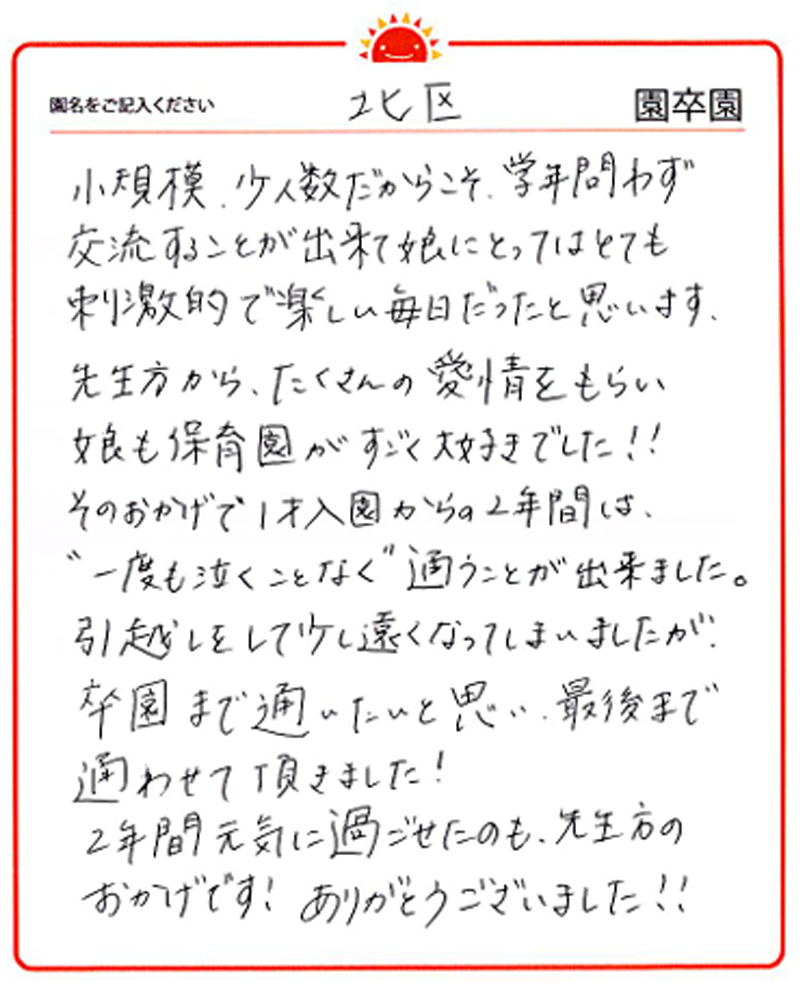 園名をご記入ください 北区 園卒園
小規模、少人数だからこそ、学年問わず
交流することが出来て娘にとってはとても
刺激的で楽しい毎日だったと思います、
先生方から、たくさんの愛情をもらい
娘も保育園がすごく大好きでした!!
そのおかげで1才入園からの2年間は、
"一度も泣くことなく"通うことが出来ました。
引越しをして少し遠くなってしまいましたが、
卒園まで通いたいと思い、最後まで
通わせて頂きました!
2年間元気に過ごせたのも、先生方の
おかげです! ありがとうございました!!